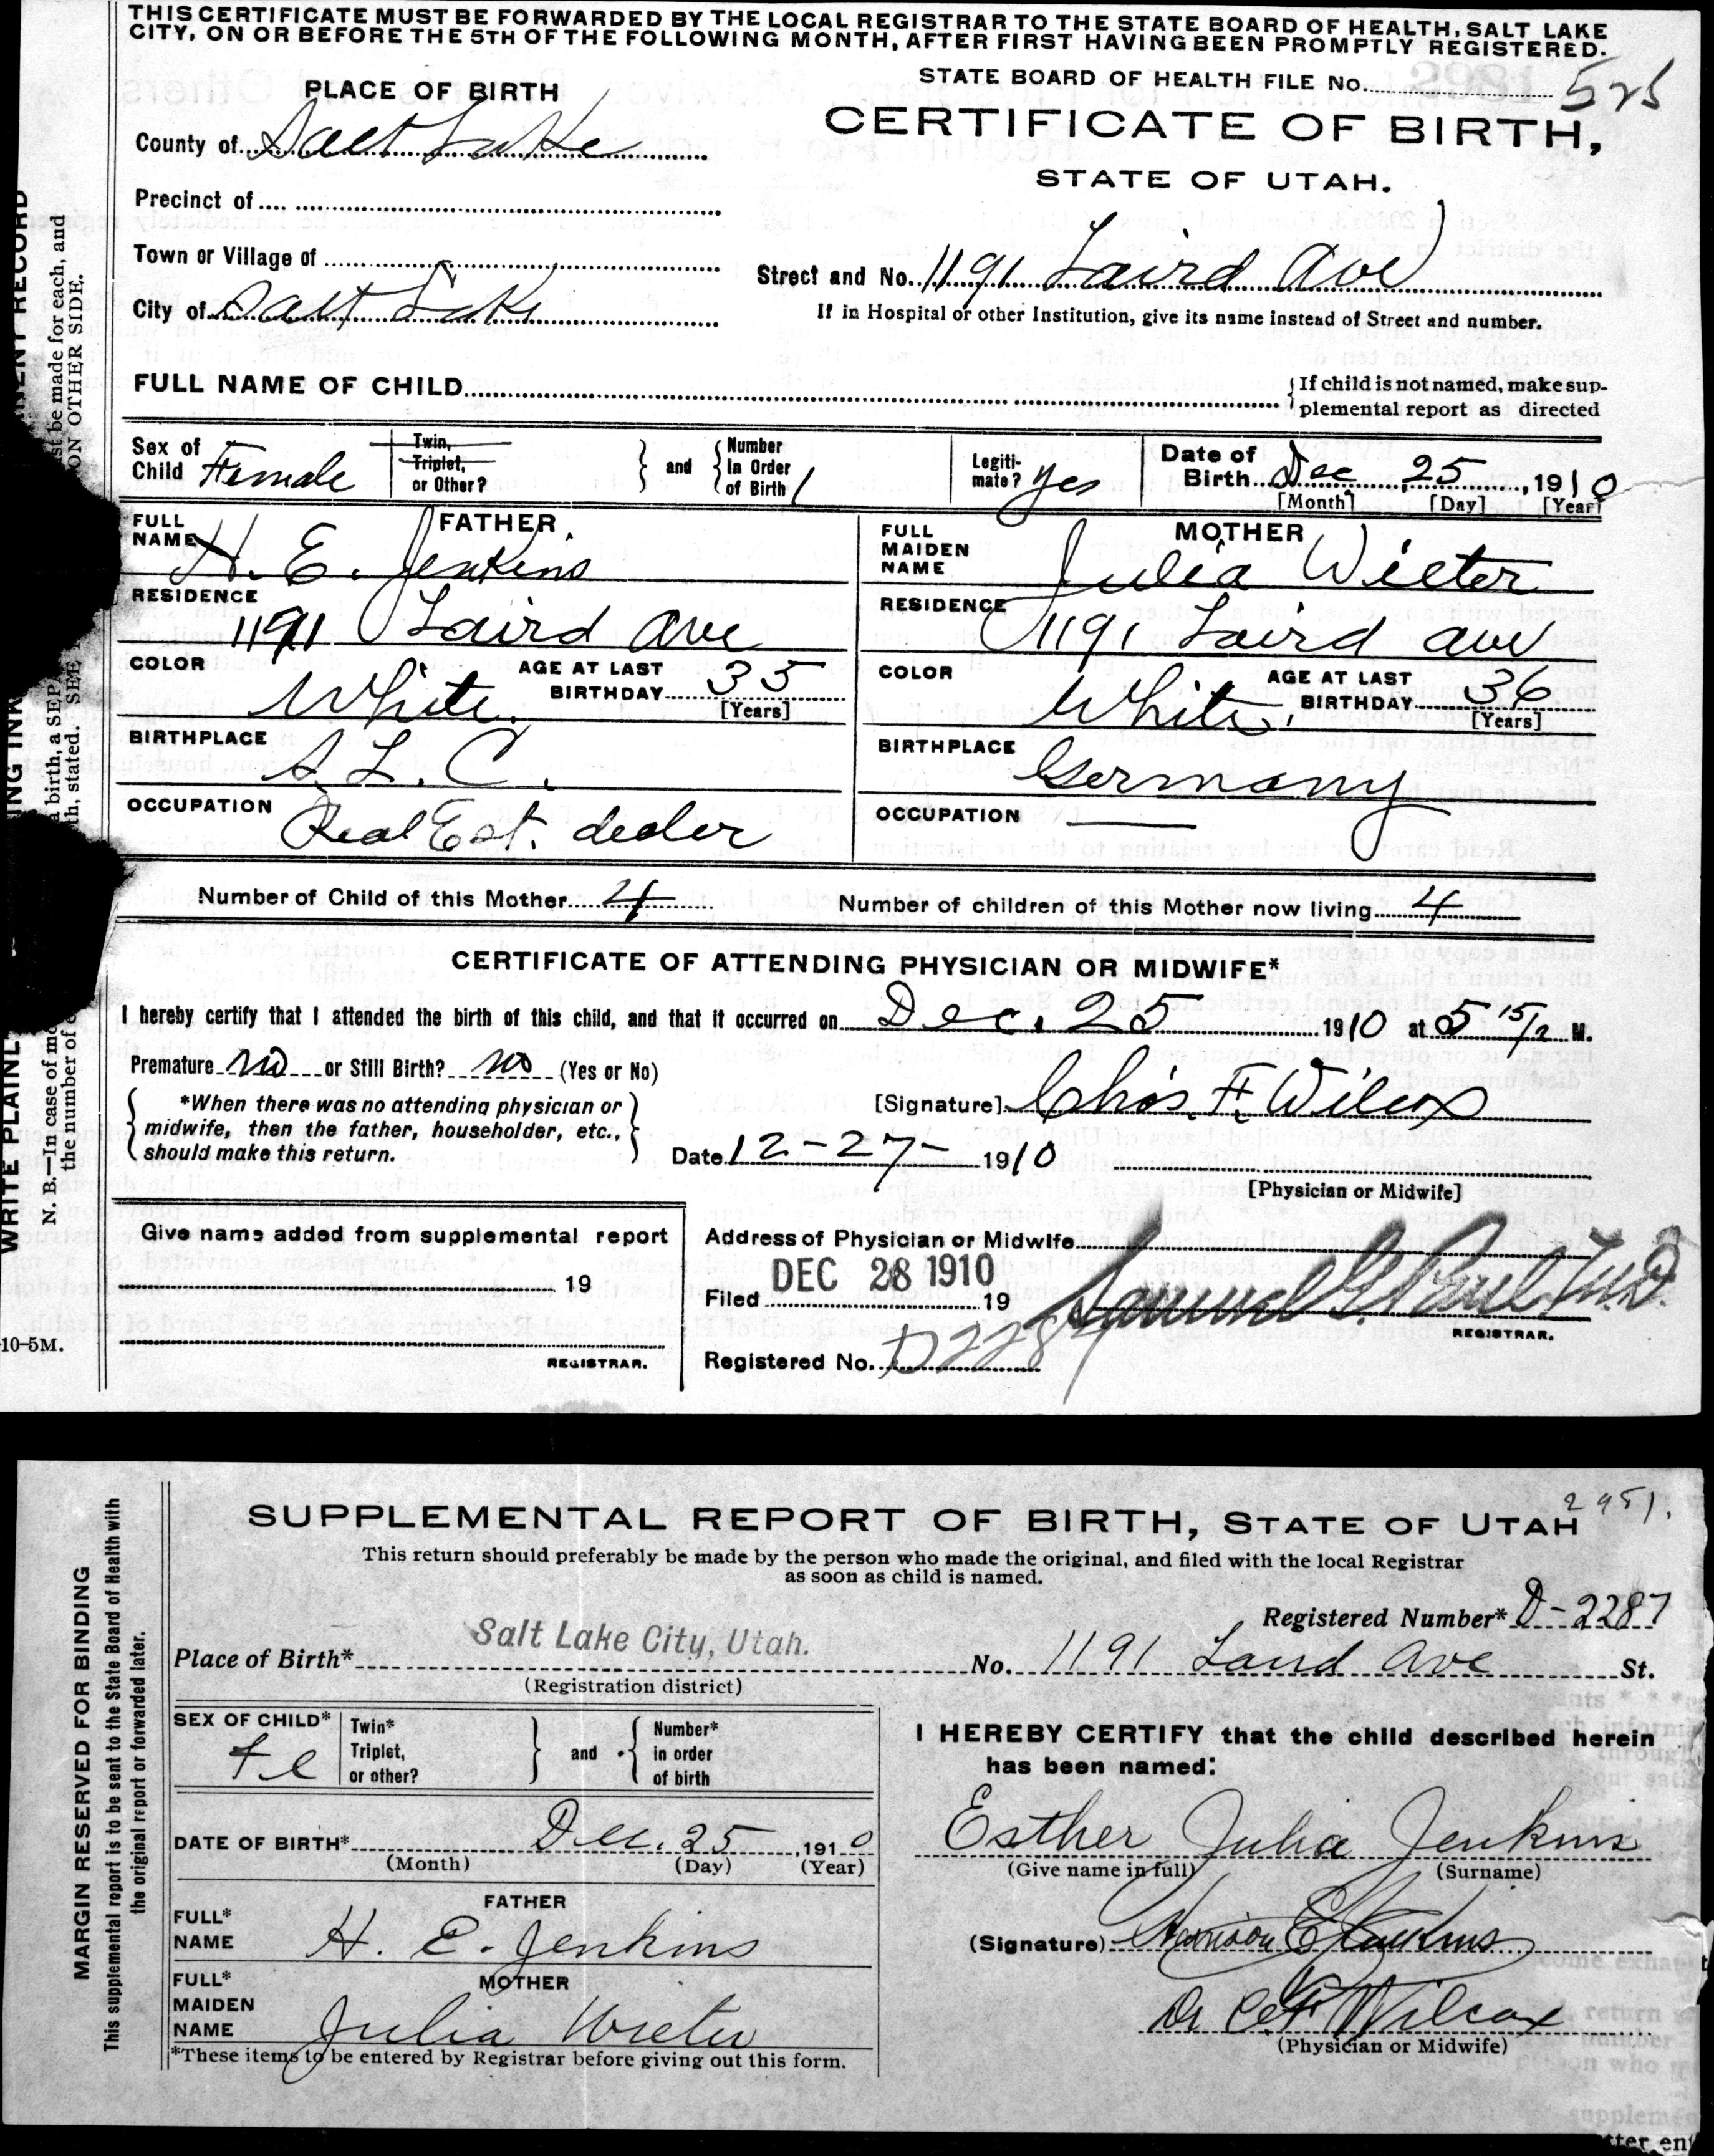 THIS CERTIFICATE MUST BE FORWARDED BY THE LOCAL REGISTRAR TO THE STATE BOARD OF HEALTH, SALT LAKE
CITY, ON OR BEFORE THE 5TH OF THE FOLLOWING MONTH, AFTER FIRST HAVING BEEN PROMPTLY REGISTERED.
PLACE OF BIRTH
STATE BOARD OF HEALTH FILE No. 525
CERTIFICATE OF BIRTH,
STATE OF UTAH.
County of Salt Lake
Precinct of
Town or Village of
City of Salt Lake
Street and No. 1191 Laird Ave
If in Hospital or other Institution, give its name instead of Street and number.
FULL NAME OF CHILD
If child is not named, make sup-
plemental report as directed
Sex of Child Female
Twin, Triplet, or Other?
and
Number In Order of Birth 1
Legiti-mate? Yes
Date of Birth Dec 25, 1910
[Month] [Day] [Year]
FATHER
FULL NAME H. E. Jenkins
RESIDENCE 1191 Laird Ave
COLOR White
AGE AT LAST BIRTHDAY 35
[Years]
BIRTHPLACE S. L. C.
OCCUPATION Real Est. dealer
MOTHER
FULL MAIDEN NAME Julia Wieter
RESIDENCE 1191 Laird ave
COLOR White
AGE AT LAST BIRTHDAY 36
[Years]
BIRTHPLACE Germany
OCCUPATION
Number of Child of this Mother 4
Number of children of this Mother now living 4
CERTIFICATE OF ATTENDING PHYSICIAN OR MIDWIFE*
I hereby certify that I attended the birth of this child, and that it occurred on Dec. 25 1910 at 5 15/ M.
Premature no or Still Birth? no (Yes or No)
*When there was no attending physician or
midwife, then the father, householder, etc.,
should make this return.
[Signature] Chas. F. Wilcox
Date 12-27- 1910
[Physician or Midwife]
Give name added from supplemental report
19
REGISTRAR.
Address of Physician or Midwife
Filed DEC 28 1910 19
Samuel G. Paul M.D.
REGISTRAR.
Registered No. D2287
WRITE PLAINL
ING INK
NENT RECORD
N. B.—In case of mo
a birth, a SEP
st be made for each, and
the number of e
th, stated. SEE
ON OTHER SIDE.
10-5M.
2951.
SUPPLEMENTAL REPORT OF BIRTH, STATE OF UTAH
This return should preferably be made by the person who made the original, and filed with the local Registrar
as soon as child is named.
Registered Number* D-2287
Place of Birth* Salt Lake City, Utah. No. 1191 Laird Ave St.
(Registration district)
SEX OF CHILD* Fe
Twin* Triplet, or other?
and
Number* in order of birth
DATE OF BIRTH* Dec. 25, 1910
(Month) (Day) (Year)
FATHER
FULL* NAME H. E. Jenkins
MOTHER
FULL* MAIDEN NAME Julia Wieter
*These items to be entered by Registrar before giving out this form.
I HEREBY CERTIFY that the child described herein
has been named:
Esther Julia Jenkins
(Give name in full) (Surname)
(Signature) Harrison E Jenkins
Dr C F Wilcox
(Physician or Midwife)
MARGIN RESERVED FOR BINDING
This supplemental report is to be sent to the State Board of Health with
the original report or forwarded later.